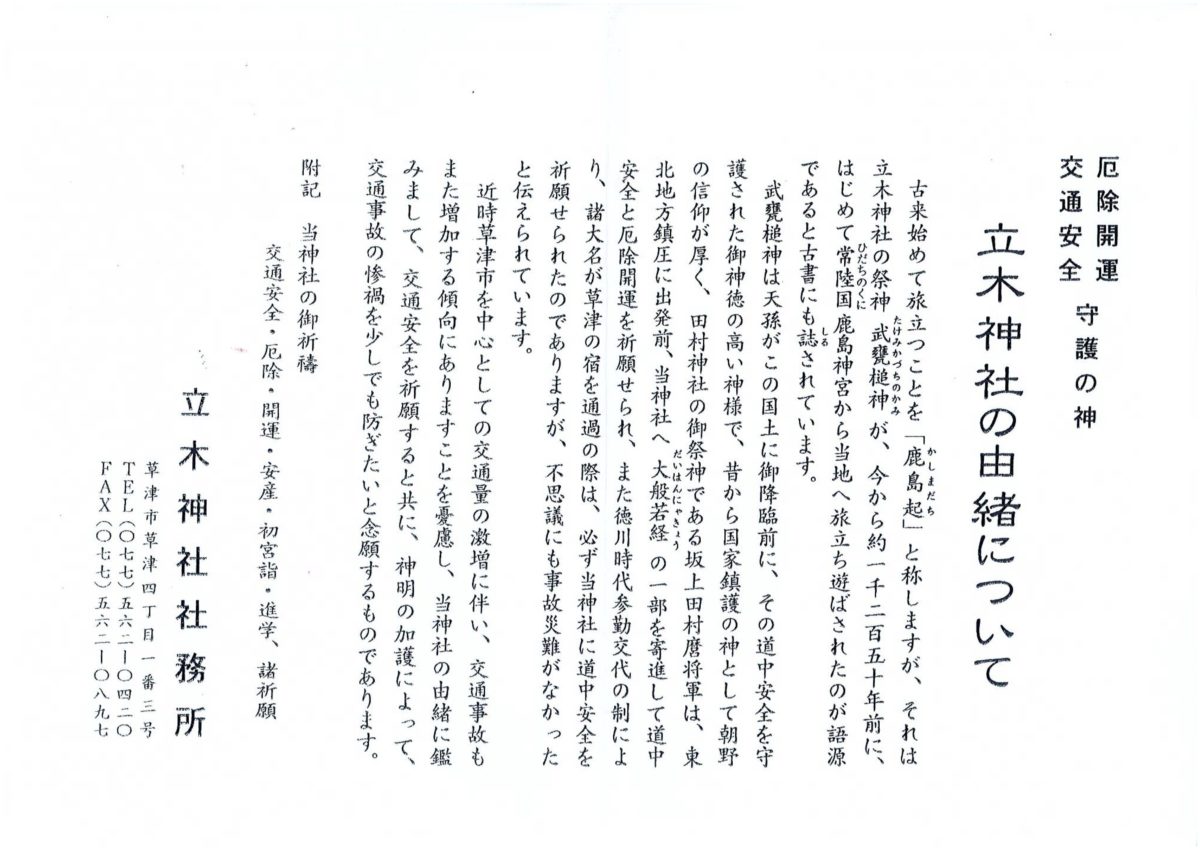 厄除開運
交通安全
守護の神
立木神社の由緒について
古来始めて旅立つことを「鹿島起」と称しますが、それは
かしまだち
立木神社の祭神 武甕槌神が、今から約一千二百五十年前に、
たけみかづちのかみ
はじめて常陸国鹿島神宮から当地へ旅立ち遊ばされたのが語源
ひだちのくに
であると古書にも誌されています。
しる
武甕槌神は天孫がこの国土に御降臨前に、その道中安全を守
護された御神徳の高い神様で、昔から国家鎮護の神として朝野
の信仰が厚く、田村神社の御祭神である坂上田村麿将軍は、東
北地方鎮圧に出発前、当神社へ 大般若経 の一部を寄進して道中
だいはんにゃきょう
安全と厄除開運を祈願せられ、また徳川時代参勤交代の制によ
り、諸大名が草津の宿を通過の際は、必ず当神社に道中安全を
祈願せられたのでありますが、不思議にも事故災難がなかった
と伝えられています。
近時草津市を中心としての交通量の激増に伴い、交通事故も
また増加する傾向にありますことを憂慮し、当神社の由緒に鑑
みまして、交通安全を祈願すると共に、神明の加護によって、
交通事故の惨禍を少しでも防ぎたいと念願するものであります。
附記 当神社の御祈禱
交通安全・厄除・開運・安産・初宮詣・進学、諸祈願
立木神社社務所
草津市草津四丁目一番三号
TEL(〇七七)五六二ー〇四二〇
FAX(〇七七)五六二ー〇八九七